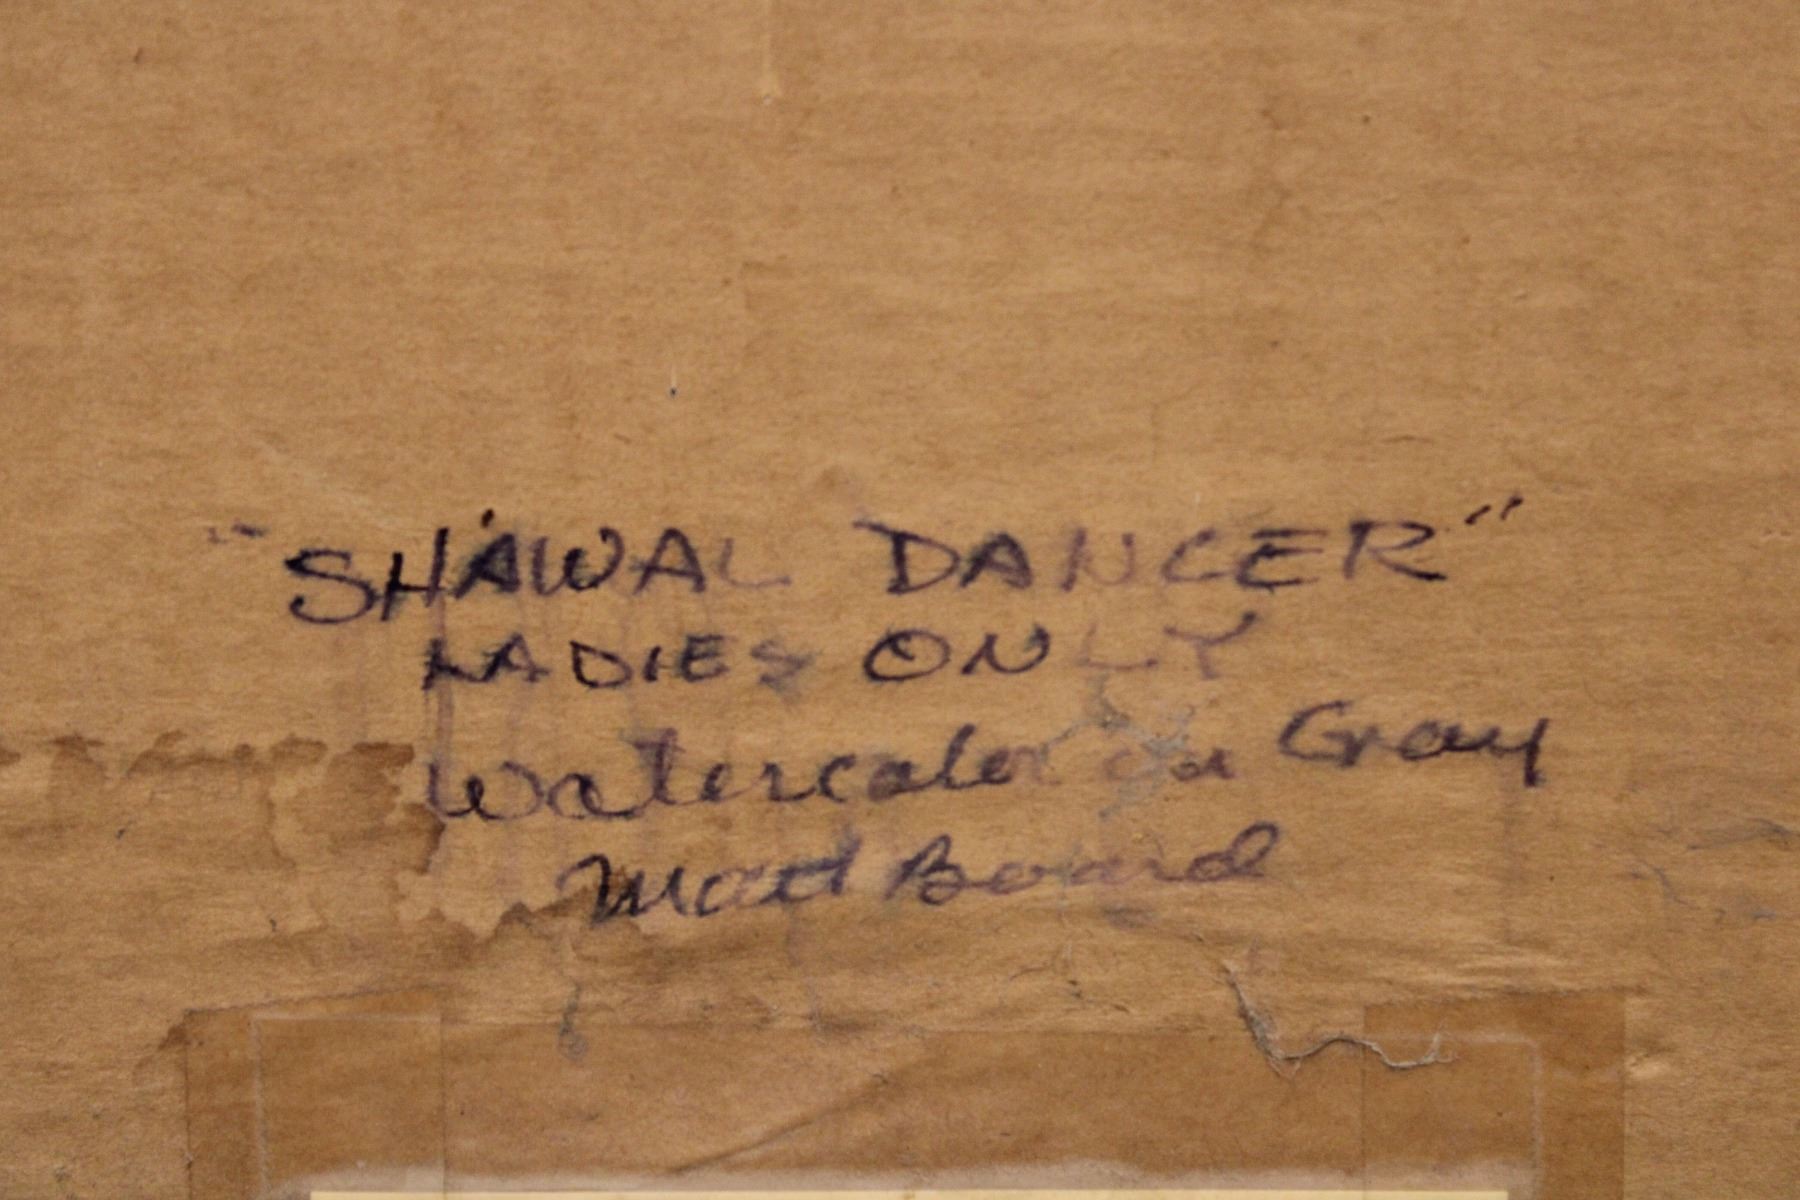 "SHAWAL DANCER"
LADIES ONLY
Watercolor on Gray
Matt Board